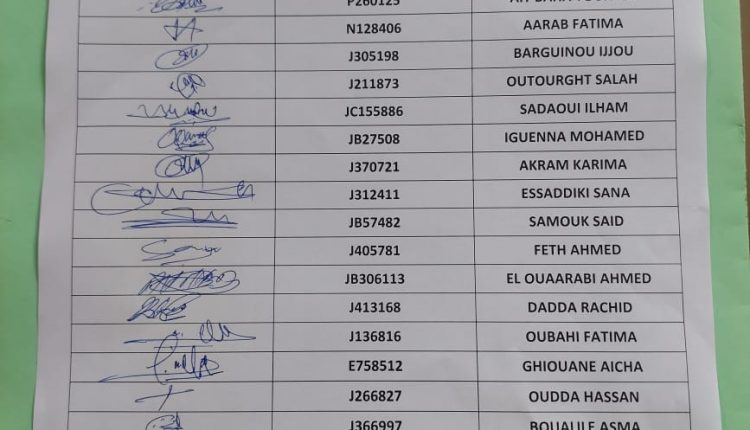 P260125
N128406 AARAB FATIMA
J305198 BARGUINOU IJJOU
J211873 OUTOURGHT SALAH
JC155886 SADAOUI ILHAM
JB27508 IGUENNA MOHAMED
J370721 AKRAM KARIMA
J312411 ESSADDIKI SANA
JB57482 SAMOUK SAID
J405781 FETH AHMED
JB306113 EL OUAARABI AHMED
J413168 DADDA RACHID
J136816 OUBAHI FATIMA
E758512 GHIOUANE AICHA
J266827 OUDDA HASSAN
J366997 BOUALILE ASMA